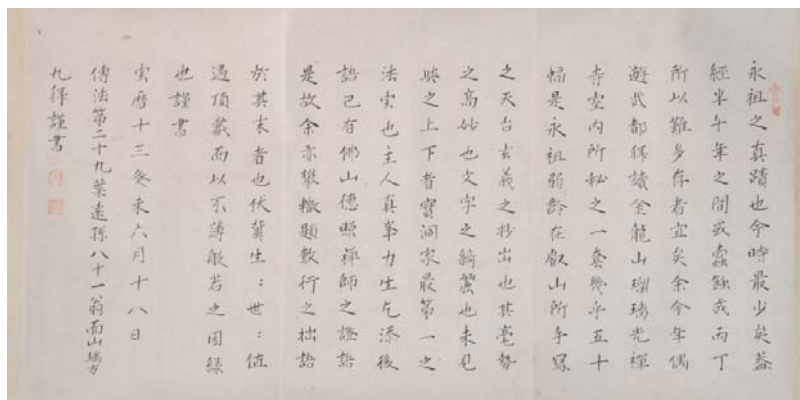 永祖之真蹟也今時最少矣蓋
經半千年之間或蠹蝕或丙丁
所以難多存者宜矣余今年偶
遊武都拜讀金龍山瑠璃光禪
寺室內所秘之一套幾乎五十
幅是永祖弱齡在叡山所手寫
之天台玄義之抄出也其毫勢
之高妙也文字之綺麗也未見
之上下者實洞家最第一之
法寶也主人真峯力生乞添後
語已有佛山德照禪師之證語
是故余亦攀轍題數行之拙語
於其末者也伏冀生:世:值
遇頂戴而以不薄般若之因緣
也謹書
寶曆十三癸未六月十八日
傳法第二十九葉遠孫八十一翁面山瑞方
九拜謹書